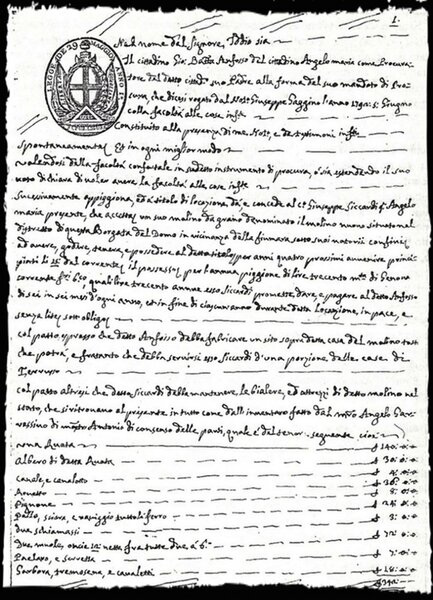 1.
Nel nome del Signore, Iddio sia
Il cittadino Gio: Batta Anfosso del cittadino Angelo maria come Procura-
tore del detto cittad.no suo Padre, alla forma del suo mandato di Pro-
cura, che dicesi rogato dal Not.o Giuseppe Gaggino l'anno 1792: 5: Giugno
colle facoltà alle cose inf.te
Constituito alla presenza di me Not.o, e de testimoni inf.ti
Spontaneamente, et in ogni miglior modo
valendosi della facoltà in suddetto instrumento di procura, o sia estendendo il suo
di chiara di voler avere la facoltà alle cose inf.te
Successivamente appiggiona, ed à titolo di locazione dà, e concede al c.o Giuseppe Siccardi q. Angelo
maria presente, che accetta un suo molino da grano denominato il molino nuovo situato nel
distretto di questa Borgata del Domo in vicinanza della fiumara sotto suoi notorii confini
ad avere, godere, tenere, e possedere al detto titolo per anni quattro prossimi avvenire princi-
piati li 15 del corrente, il possesso, per l'annua piggione di lire trecento m.ta di Genova
corrente f.b. quali lire trecento annue esso Siccardi promette, dare, e pagare al detto Anfosso
di sei in sei mesi d'ogni anno, et in fine di ciascun durante detta Locazione, in pace, e
senza lite, sott'obbligo
col patto espresso che detto Anfosso debba fabricare un sito sopra detta casa del molino
che potrà, e frattanto che debba servirsi esso Siccardi d'una porzione delle case di
Terrusso
col patto altresì che detto Siccardi debba mantenere, le bialere, ed attrezzi di detto molino nel
stato, che si ritrovano al presente in tutto come dall'inventaro fatto dal m.ro Angelo Gar-
rossino di m.ro Antonio di consenso delle parti, quale è del tenor seguente cioè
una Ruata £ 140: 0: 0
Albero di detta Ruata £ 30: 0: 0
canale, e canaletto £ 36: 0: 0
Roratto £ 8: 0: 0
Pignone £ 24: 0: 0
Pallo, sciora, e naviggio tutto di ferro £ 3: 0: 0
due schiamassi
Due muole, oncie 12: netta fra tutte due à 6: £ 72: 0: 0
Paelaro, e serretta £ 7: 0: 0
Sorbora, tremosena, e cavaletti £ 18: 0: 0